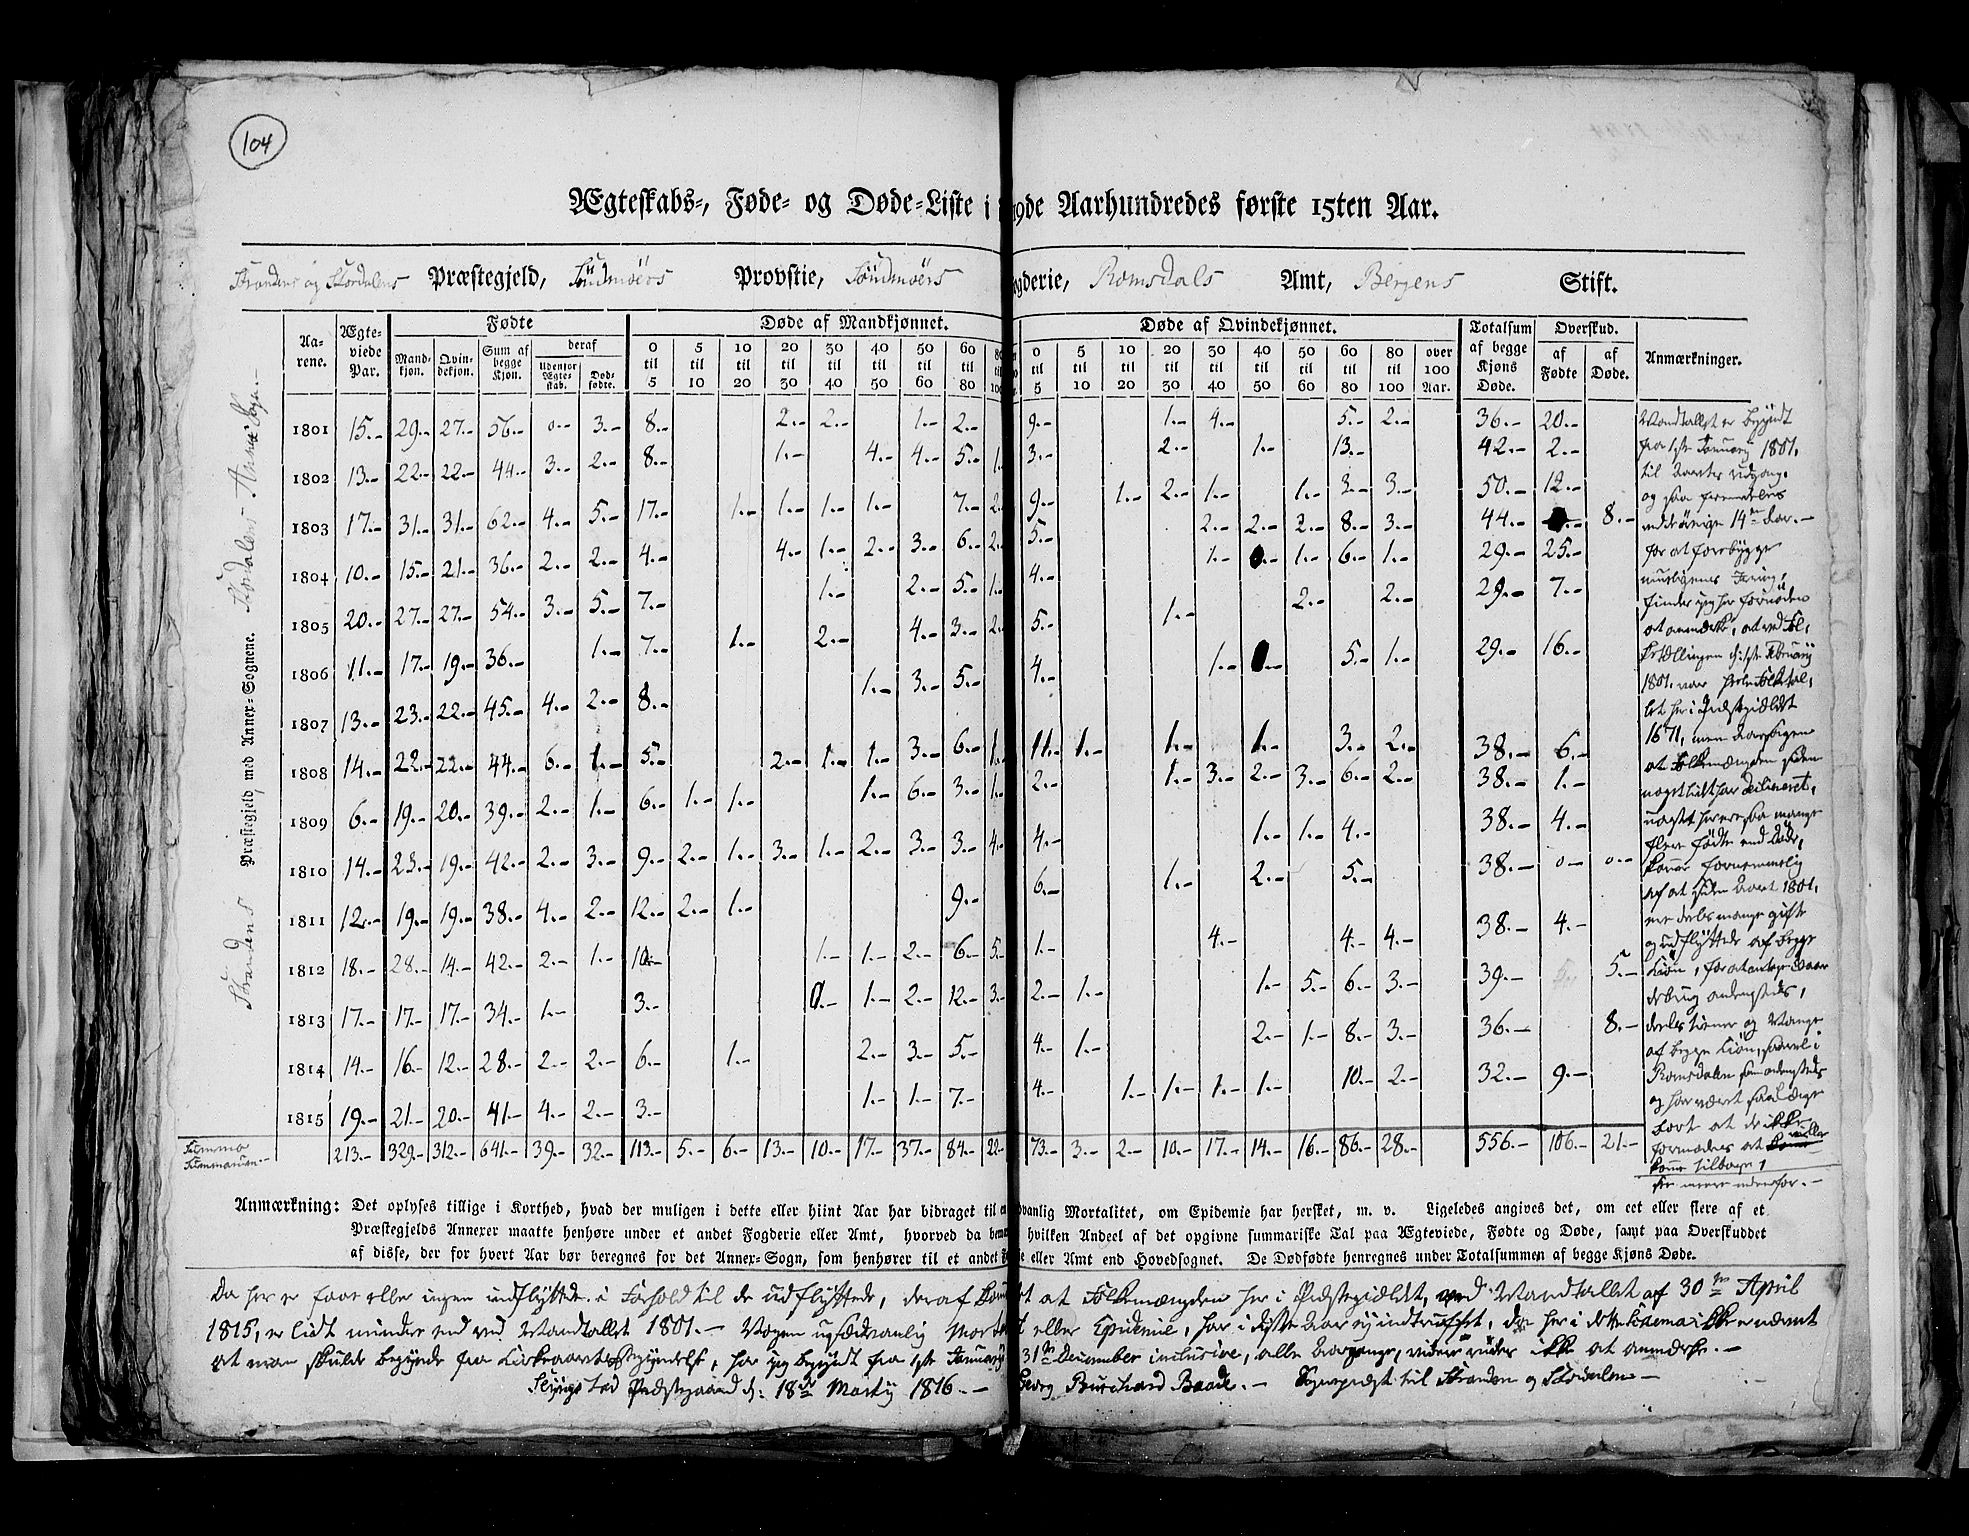 104
Ægteskabs-, Føde- og Døde-Liste i 19de Aarhundredes første 15ten Aar.
Strandens og Stordalens Præstegjeld, Söndmoërs Provstie, Söndmoërs gderie, Romsdals Amt, Bergens Stift.
Strandens Præstegjeld, med Annex-Sognene. Stordalens Annex Sogn.
Aarene. Ægteviede Par. Fødte Døde af Mandkjønnet. Døde af Qvindekjønnet. Totalsum af begge Kjøns Døde. Overskud. Anmærkninger.
Mandkjøn. Qvindekjøn. Sum af begge Kjøn. beraf Udenfor Ægteskab. Dødfødte. 0 til 5 5 til 10 10 til 20 20 til 30 30 til 40 40 til 50 50 til 60 60 til 80 80 100 0 til 5 5 til 10 10 til 20 20 til 30 30 til 40 40 til 50 50 til 60 60 til 80 80 til 100 over 100 Aar. af Fødte af Døde.
1801 15.- 29.- 27.- 56.- 0.- 3.- 8.- 2.- 2.- 1.- 2.- 9.- 1.- 4.- 5.- 2.- 36.- 20.-
1802 13.- 22.- 22.- 44.- 3.- 2.- 8.- 1.- 4.- 4.- 5.- 1. 3.- 2.- 1.- 13.- 42.- 2.-
1803 17.- 31.- 31.- 62.- 4.- 5.- 17.- 1.- 1.- 1.- 1.- 7.- 2. 9.- 1.- 2.- 1.- 1.- 3.- 3.- 50.- 12.-
1804 10.- 15.- 21.- 36.- 2.- 2.- 4.- 4.- 1.- 2.- 3.- 6.- 2. 5.- 2.- 2.- 2.- 8.- 3.- 44.- 8.-
1805 20.- 27.- 27.- 54.- 3.- 5.- 7.- 1.- 2.- 5.- 1. 4.- 1.- 1.- 6.- 1.- 29.- 25.-
1806 11.- 17.- 19.- 36.- 1.- 7.- 1.- 2.- 4.- 3.- 2. 5.- 1.- 2.- 2.- 29.- 7.-
1807 13.- 23.- 22.- 45.- 4.- 2.- 8.- 1.- 3.- 5.- 4.- 1.- 5.- 1.- 29.- 16.-
1808 14.- 22.- 22.- 44.- 6.- 1.- 5.- 2.- 1.- 1.- 3.- 6.- 1. 11.- 1.- 1.- 1.- 3.- 2.- 38.- 6.-
1809 6.- 19.- 20.- 39.- 2.- 1.- 6.- 1.- 1.- 1.- 6.- 3.- 1. 2.- 1.- 3.- 2.- 3.- 6.- 2.- 38.- 1.-
1810 14.- 23.- 19.- 42.- 2.- 3.- 9.- 2.- 1.- 3.- 1.- 2.- 3.- 3.- 4. 4.- 1.- 1.- 4.- 38.- 4.-
1811 12.- 19.- 19.- 38.- 4.- 2.- 12.- 2.- 1.- 9.- 6.- 1.- 2.- 5.- 38.- 0.- 0.-
1812 18.- 28.- 14.- 42.- 2.- 1.- 10.- 1.- 1.- 2.- 6.- 5. 1.- 4.- 4.- 4.- 38.- 4.-
1813 17.- 17.- 17.- 34.- 1.- 3.- 1.- 2.- 12.- 3. 2.- 1.- 1.- 5.- 6.- 3.- 39.- 5.-
1814 14.- 16.- 12.- 28.- 2.- 2.- 6.- 1.- 2.- 3.- 5.- 4.- 1.- 2.- 1.- 8.- 3.- 36.- 8.-
1815 19.- 21.- 20.- 41.- 4.- 2.- 3.- 1.- 1.- 7.- 4.- 1.- 1.- 1.- 1.- 10.- 2.- 32.- 9.-
Summa Summarum.- 213.- 329.- 312.- 641.- 39.- 32.- 113.- 5.- 6.- 13.- 10.- 17.- 37.- 84.- 22.- 73.- 3.- 2.- 10.- 17.- 14.- 16.- 86.- 28.- 556.- 106.- 21.-
Mandtallet er begyndt
fra 1ste Januarij 1801.
til Aarets Udgang.
og saa fremdeles
14de Aar.-
for at forebygge
muligens Irring,
finder jeg her fornöden
at anmærke, at ved Fol-
ketællingen d: 1ste Februarij
1801. var hele Folketal-
let her i Præstegieldet
1671, men Aarsagen
at Folkemængden siden
noget lidt har declineret,
uagtet her ere saa mange
flere fødte end døde,
kommer fornemmelig
af at siden Aaret 1801.
ere deels mange gifte
og udflyttede af begge
Kiön, for at antage Gaar-
debrug andensteds,
deels tienere og Mange
af begge Kiön, saavel i
Romsdalen som andensteds
og har været saalænge
bort at de ikke
formodes at vilde
komme tilbage,
see mere nedenfor.-
Anmærkning: Det oplyses tillige i Korthed, hvad der muligen i dette eller hiint Aar har bidraget til en dvanlig Mortalitet, om Epidemie har hersket, m. v. Ligeledes angives det, om eet eller flere af et
Præstegjelds Annexer maatte henhøre under et andet Fogderie eller Amt, hvorved da bem hvilken Andeel af det opgivne summariske Tal paa Ægteviede, Fødte og Døde, samt paa Overskuddet
af disse, der for hvert Aar bør beregnes for det Annex-Sogn, som henhører til et andet F e eller Amt end Hovedsognet. De Dødfødte henregnes under Totalsummen af begge Kjøns Døde.
Da her er faae eller ingen indflÿttede i Forhold til de udflÿttede, deraf kom et at Folkemængden her i Præstegieldet, ved Mandtallet af 30te April
1815, er lidt mindre end ved Mandtallet 1801.- Nogen usædvanlig Mort t eller Epidemie, har i disse Aar ej indtruffet, da her i dette Schema ikke er nævnt
at man skulde begynde fra Kirkeaarets Begyndelse, har jeg begyndt fra 1ste Januarij 31te December inclusive, alle Aargange, videre vides ikke at anmærke.-
Slyngstad Præstegaard d: 18de Martij 1816.- Georg Burchard Baade.- Sognepræst til Stranden og Stordalen-